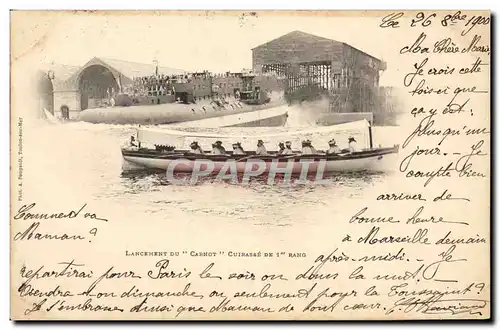 Ce 26 8bre 1900
Ma Chère Marie
Je crois cette
fois-ci que
ça y est,
plus qu'un
jour. - Je
compte bien
arriver de
bonne heure
à Marseille demain
après-midi. Je
Comment va
Maman ?
repartirai pour Paris le soir ou dans la nuit.
on dimanche ou seulement pour la Toussaint ?
Je t'embrasse ainsi que Maman de tout cœur.
LANCEMENT DU " CARNOT " CUIRASSÉ DE 1er RANG
Toulon-sur-Mer
CPArama